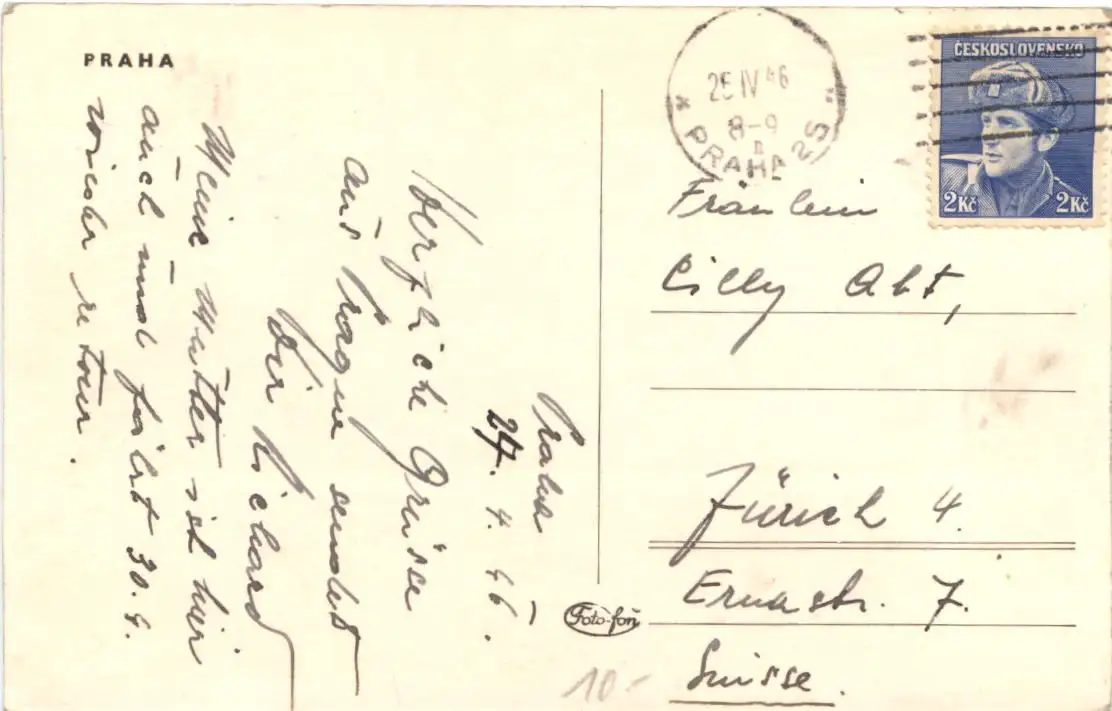 PRAHA
Praha
24. 4. 46.
Herzliche Grüsse
aus Prague sendet
Dir Richard
Meine Mutter ist hier
auch und fährt 30.4.
wieder retour.
Foto-fon
10.-
25 IV 46
8-9
PRAHA 25
ČESKOSLOVENSKO
2 Kč 2 Kč
Fräulein
Cilly Abt,
Zürich 4.
Ernastr. 7.
Suisse.